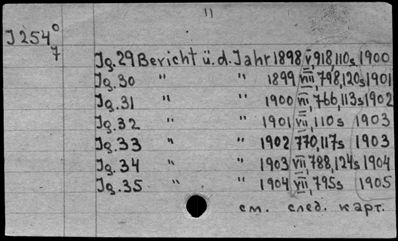 11
J 254⁰
7
Jg. 29 Bericht ü. d. Jahr 1898 V, 918, 110s 1900
Jg. 30 " " 1899 VIII, 798, 120s 1901
Jg. 31 " " 1900 VII, 766, 113s 1902
Jg. 32 " " 1901 VII, 110s 1903
Jg. 33 " " 1902 770, 117s 1903
Jg. 34 " " 1903 VII 788, 124s 1904
Jg. 35 " " 1904 VII, 795s 1905
см. след. карт.